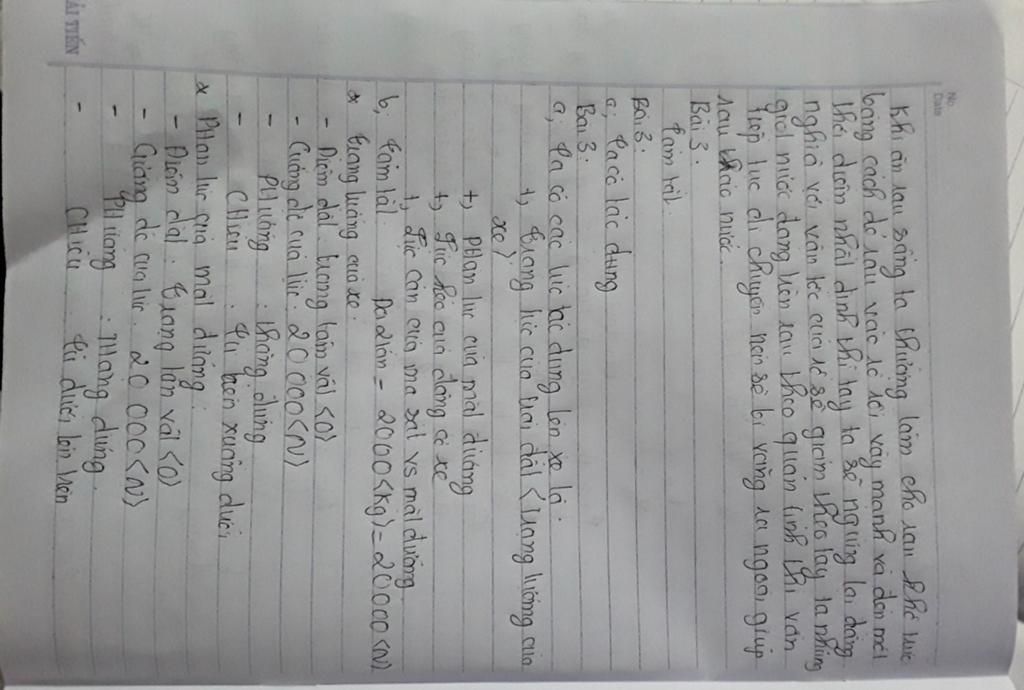 No
Date
Khi ăn rau sống ta thường làm cho rau khô nước
bằng cách để rau vào rổ rồi vẩy mạnh và đến một
thời điểm nhất định thì tay ta sẽ ngừng lại đồng
nghĩa với vận tốc của rổ sẽ giảm theo tay ta nhưng
giọt nước đang trên rau theo quán tính thì vẫn
tiếp tục di chuyển nên sẽ bị văng ra ngoài giúp
rau ráo nước.
Bài 3.
Tóm tắt.
Bài 3:
a, Ta có tác dụng
Bài 3:
a, Ta có các lực tác dụng lên xe là:
+, Trọng lực của trái đất <trọng lượng của
xe>
+, Phản lực của mặt đường
+, Lực kéo của động cơ xe
+, Lực cản của ma sát vs mặt đường
b, Tóm tắt. Đổi 2 tấn = 2000<kg> = 20000 <N>
* Trọng lượng của xe:
- Điểm đặt: trọng tâm vật <O>
- Cường độ của lực: 20 000 <N>
- Phương : thẳng đứng
- Chiều : Từ trên xuống dưới
* Phản lực của mặt đường:
- Điểm đặt: Trọng tâm vật <O>
- Cường độ của lực: 20 000 <N>
- Phương : Thẳng đứng.
- Chiều : Từ dưới lên trên
ẢI TIẾN